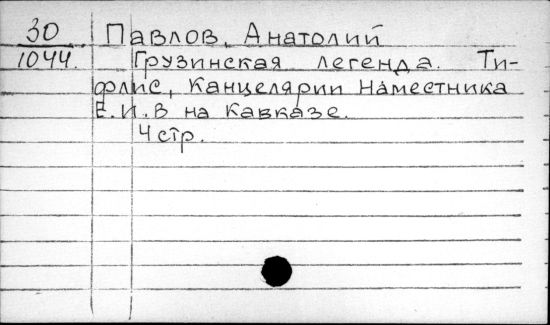 30 Павлов, Анатолий
1044. Грузинская легенда. Ти-
флис, Канцелярии Наместника
Е.И.В на Кавказе.
4 стр.